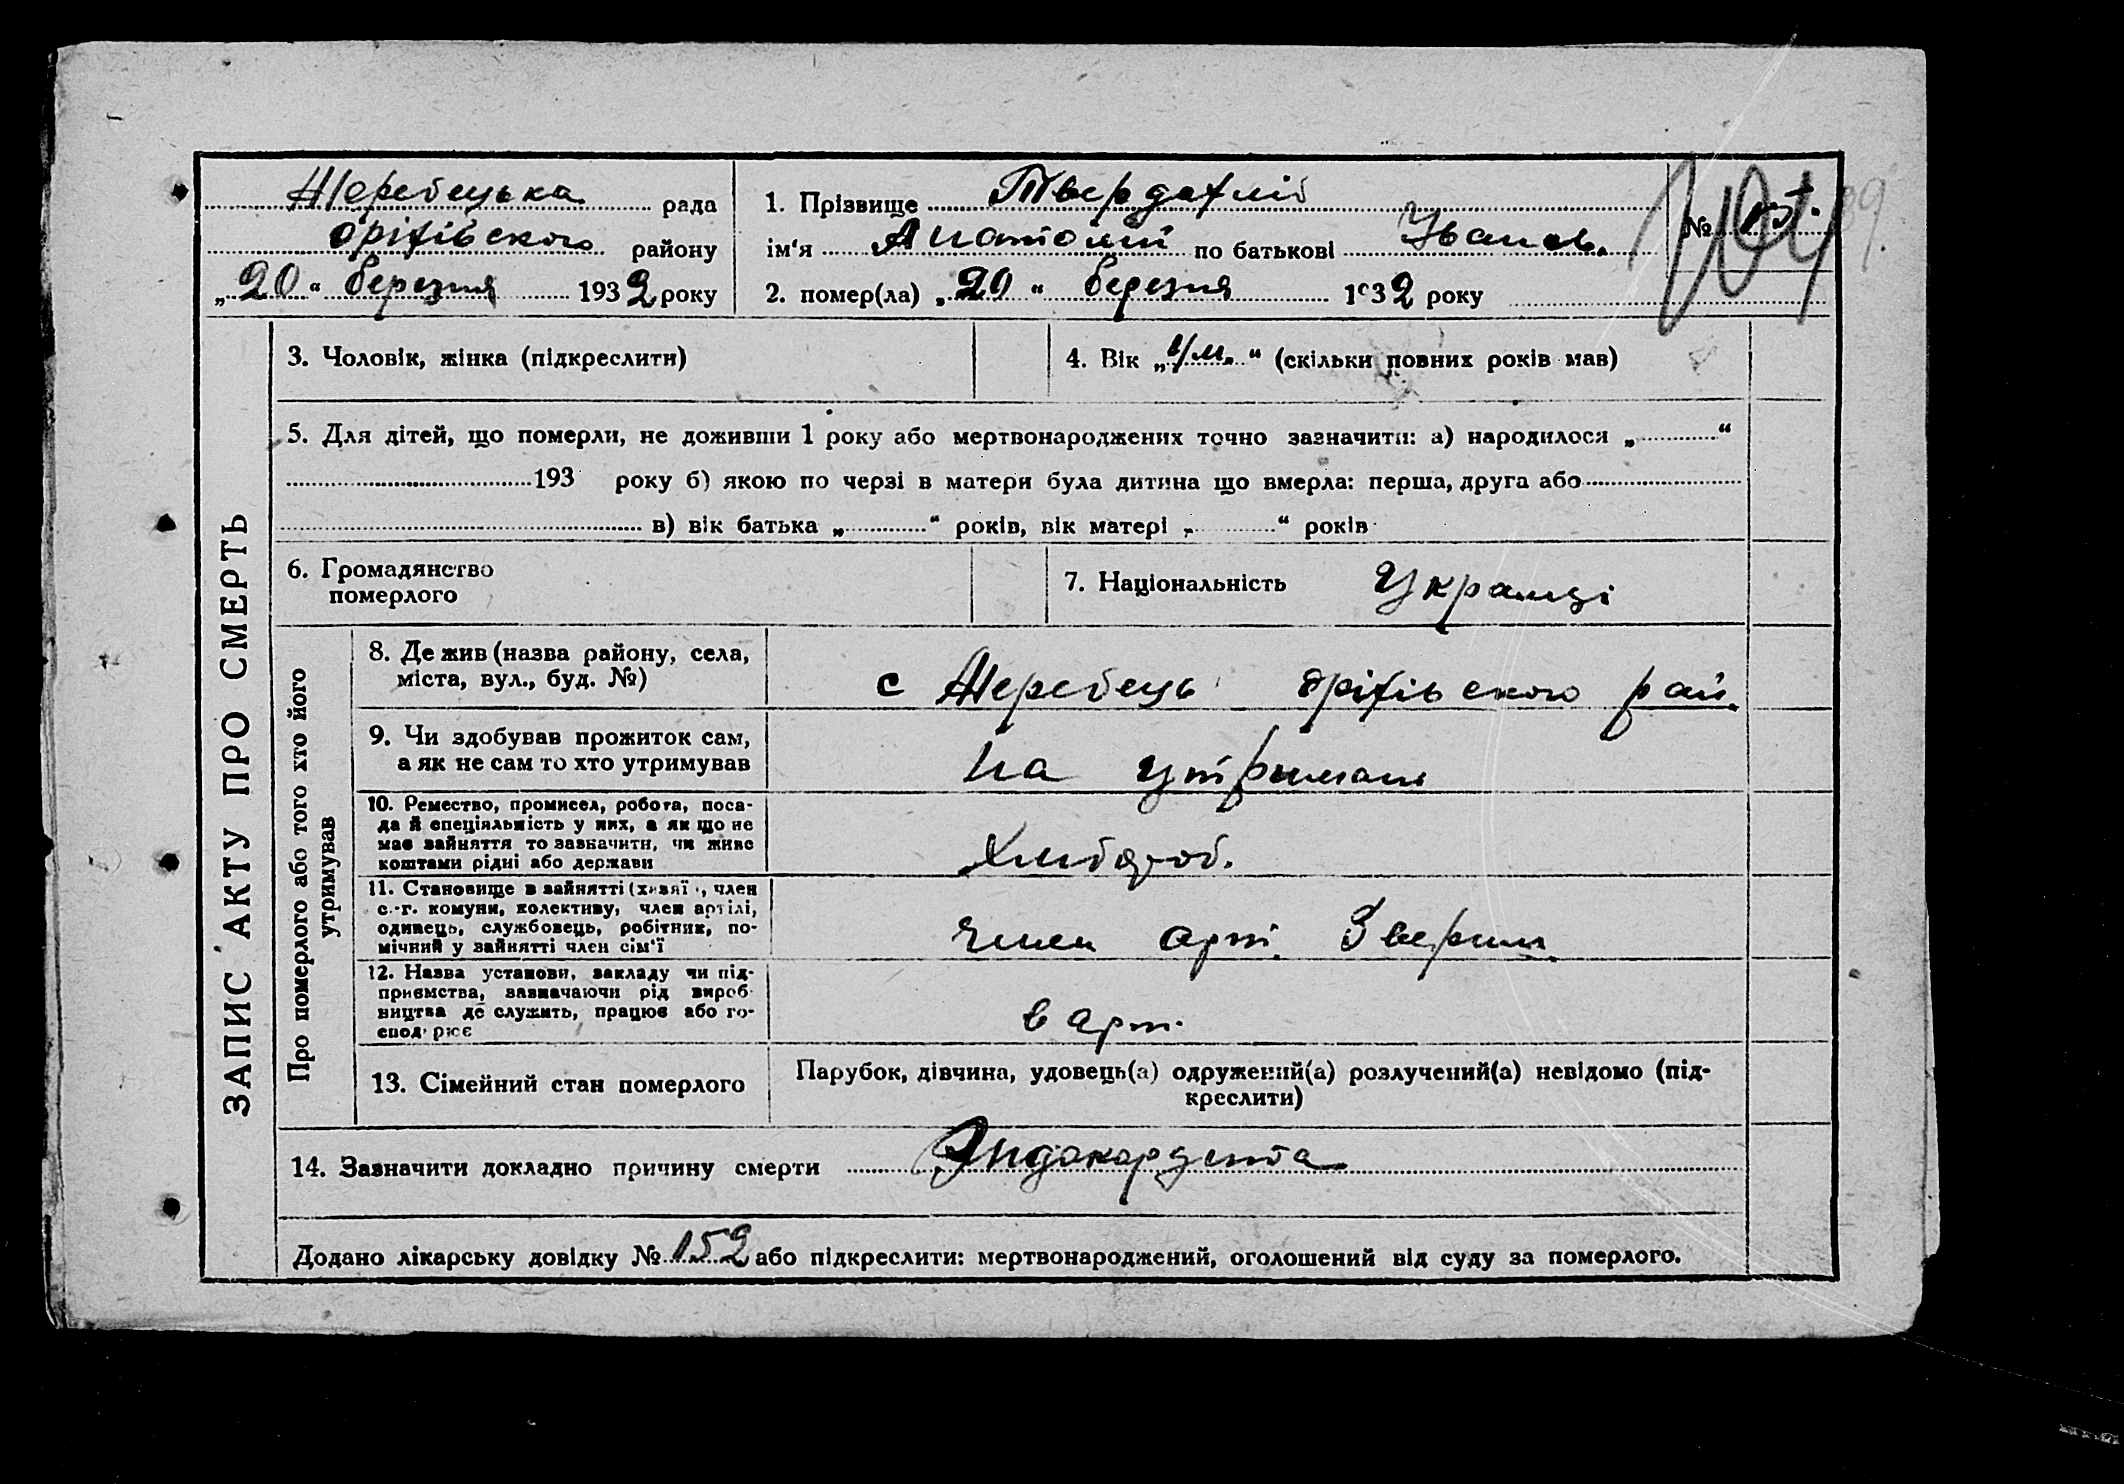 Жеребецька рада
Оріхівского району
„20“ березня 1932 року
1. Прізвище Твердохліб
ім‘я Анатолій по батькові Іванов.
2. помер(ла) „20“ березня 1932 року
№
104
89.
3. Чоловік, жінка (підкреслити)
4. Вік „1/м.“ (скільки повних років мав)
5. Для дітей, що померли, не доживши 1 року або мертвонароджених точно зазначити: а) народилося „ “
193 року б) якою по черзі в матери була дитина що вмерла: перша, друга або
в) вік батька „ “ років, вік матері „ “ років
6. Громадянство
померлого
7. Національність Украінці
ЗАПИС АКТУ ПРО СМЕРТЬ
Про померлого або того хто його
утримував
8. Де жив (назва району, села,
міста, вул., буд. №)
с Жеребець Оріхівского рай.
9. Чи здобував прожиток сам,
а як не сам то хто утримував
на утриман
10. Ремество, промисел, робота, поса-
да й спеціяльність у них, а як що не
має зайняття то зазначити, чи живе
коштами рідні або держави
Хлібороб.
11. Становище в зайнятті (хазяї , член
с.-г. комуни, колективу, член артілі,
одинець, службовець, робітник, по-
мічний у зайнятті член сім‘ї
член арт.
12. Назва установи, закладу чи під-
приємства, зазначаючи рід вироб-
ництва де служить, працює або го-
спод рює
в арт.
13. Сімейний стан померлого
Парубок, дівчина, удовець(а) одружений(а) розлучений(а) невідомо (під-
креслити)
14. Зазначити докладно причину смерти
Додано лікарську довідку № 152 або підкреслити: мертвонароджений, оголошений від суду за померлого.